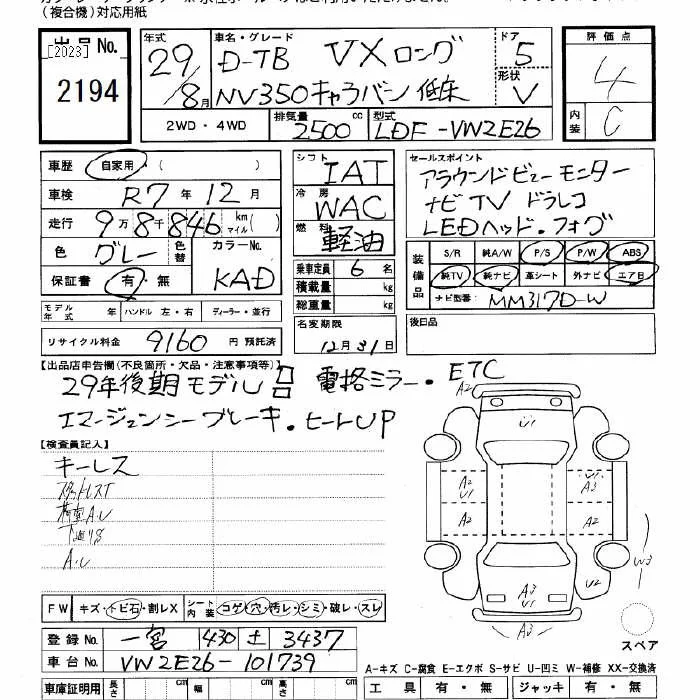 (複合機)対応用紙
出品No. [2023] 2194
年式 29 / 8月
車名・グレード D-TB VXロング
NV350キャラバン 低床
ドア 5
形状 V
2WD・4WD 排気量 2500 cc 型式 LDF-VW2E26
評価点 4
内装 C
車歴 自家用・( )
車検 R7年 12月
走行 9万8千846 km マイル( )
色 グレー 色替 カラーNo. KAD
保証書 有・無
モデル年式 年 ハンドル 左・右 ディーラー・並行
リサイクル料金 9160 円 預託済
シフト IAT
冷房 WAC
燃料 軽油
乗車定員 6 名
積載量 kg
総重量 kg
名変期限
12月31日
セールスポイント
アラウンドビューモニター
ナビTV ドラレコ
LEDヘッド・フォグ
装備品 S/R 純A/W P/S P/W ABS
純TV 純ナビ 革シート 外ナビ エアB
ナビ型番: MM317D-W
後日品
【出品店申告欄(不良箇所・欠品・注意事項等)】
29年後期モデル 電格ミラー・ETC
エマージェンシーブレーキ・ヒートUP
【検査員記入】
キーレス
荷室A.U
A.U
A2
U1
A2 U1
U1 A3
A2
A2
U2
W3
A3 U1
A3
スペア
FW キズ・トビ石・割レX シート内装 コゲ・穴・汚レ・シミ・破レ・スレ
登録No. 一宮 430 土 3437
車台No. VW2E26-101739
車庫証明用 長さ cm 幅 cm 高さ cm
A-キズ C-腐食 E-エクボ S-サビ U-凹ミ W-補修 XX-交換済
工具 有・無 ジャッキ 有・無